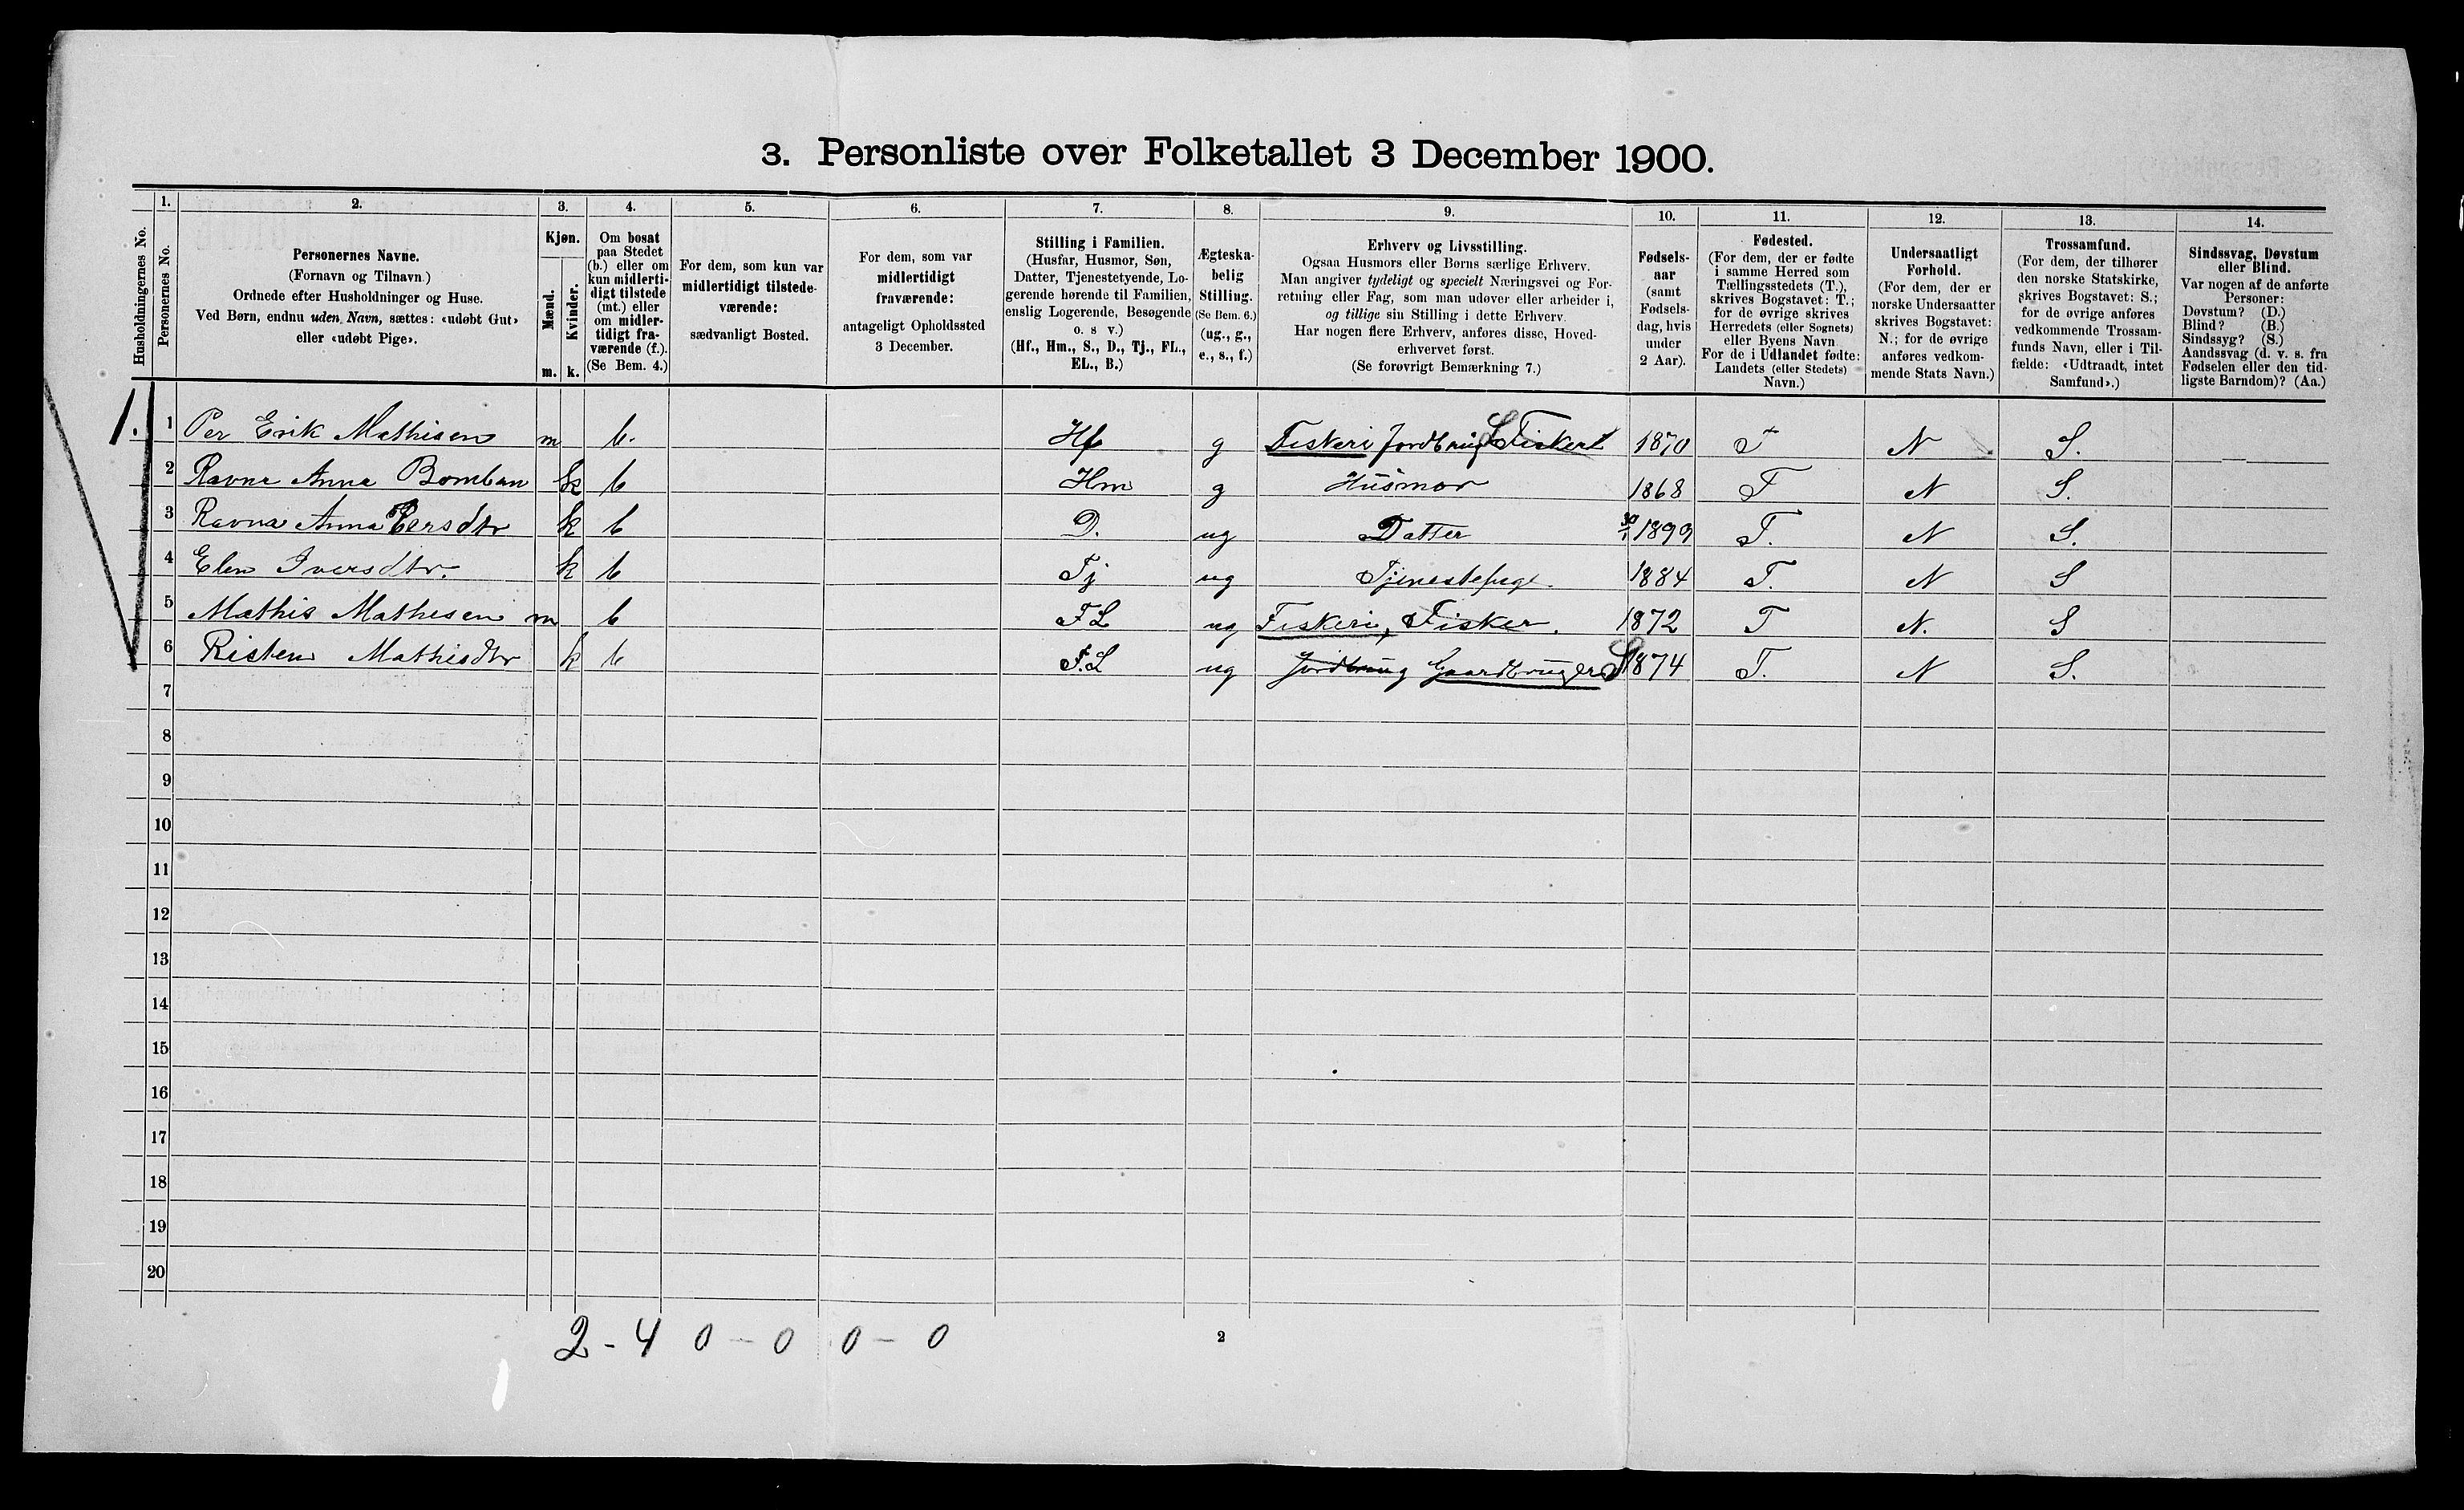 3. Personliste over Folketallet 3 December 1900.
1. 2. 3. 4. 5. 6. 7. 8. 9. 10. 11. 12. 13. 14.
Husholdningernes No.
Personernes No.
Personernes Navne.
(Fornavn og Tilnavn.)
Ordnede efter Husholdninger og Huse.
Ved Børn, endnu uden Navn, sættes: «udøbt Gut»
eller «udøbt Pige».
Kjøn.
Mænd.
Kvinder.
m. k.
Om bosat
paa Stedet
(b.) eller om
kun midlerti-
digt tilstede
(mt.) eller
om midler-
tidigt fra-
værende (f.).
(Se Bem. 4.)
For dem, som kun var
midlertidigt tilstede-
værende:
sædvanligt Bosted.
For dem, som var
midlertidigt
fraværende:
antageligt Opholdssted
3 December.
Stilling i Familien.
(Husfar, Husmor, Søn,
Datter, Tjenestetyende, Lo-
gerende hørende til Familien,
enslig Logerende, Besøgende
o. s v.)
(Hf., Hm., S., D., Tj., FL.,
EL., B.)
Ægteska-
belig
Stilling.
(Se Bem. 6.)
(ug., g.,
e., s., f.)
Erhverv og Livsstilling.
Ogsaa Husmors eller Børns særlige Erhverv.
Man angiver tydeligt og specielt Næringsvei og For-
retning eller Fag, som man udøver eller arbeider i,
og tillige sin Stilling i dette Erhverv.
Har nogen flere Erhverv, anføres disse, Hoved-
erhvervet først.
(Se forøvrigt Bemærkning 7.)
Fødsels-
aar
(samt
Fødsels-
dag, hvis
under
2 Aar).
Fødested.
(For dem, der er fødte
i samme Herred som
Tællingsstedets (T.),
skrives Bogstavet: T.;
for de øvrige skrives
Herredets (eller Sognets)
eller Byens Navn
For de i Udlandet fødte:
Landets (eller Stedets)
Navn.)
Undersaatligt
Forhold.
(For dem, der er
norske Undersaatter
skrives Bogstavet:
N.; for de øvrige
anføres vedkom-
mende Stats Navn.)
Trossamfund.
(For dem, der tilhører
den norske Statskirke,
skrives Bogstavet: S.;
for de øvrige anføres
vedkommende Trossam-
funds Navn, eller i Til-
fælde: «Udtraadt, intet
Samfund».)
Sindssvag, Døvstum
eller Blind.
Var nogen af de anførte
Personer:
Døvstum? (D.)
Blind? (B.)
Sindssyg? (S.)
Aandssvag (d. v. s. fra
Fødselen eller den tid-
ligste Barndom)? (Aa.)
1. 1 Per Erik Mathisen m b. Hf g Fiskeri Jordbrug S Fisker 1870 T N S.
2 Ravna Anna Bomban k b Hm g Husmor 1868 T N S.
3 Ravna Anna Persdtr k b D. ug Datter 30/1 1899 T. N S.
4 Elen Iversdtr. k b Tj ug Tjenestepige. 1884 T. N S
5 Mathis Mathisen m b FL ug Fiskeri, Fisker. 1872 T N. S
6 Risten Mathisdtr k b F.L ug Jordbrug Gaardbruger S 1874 T. N S.
7
8
9
10
11
12
13
14
15
16
17
18
19
20
2 - 4 0 - 0 0 - 0
2